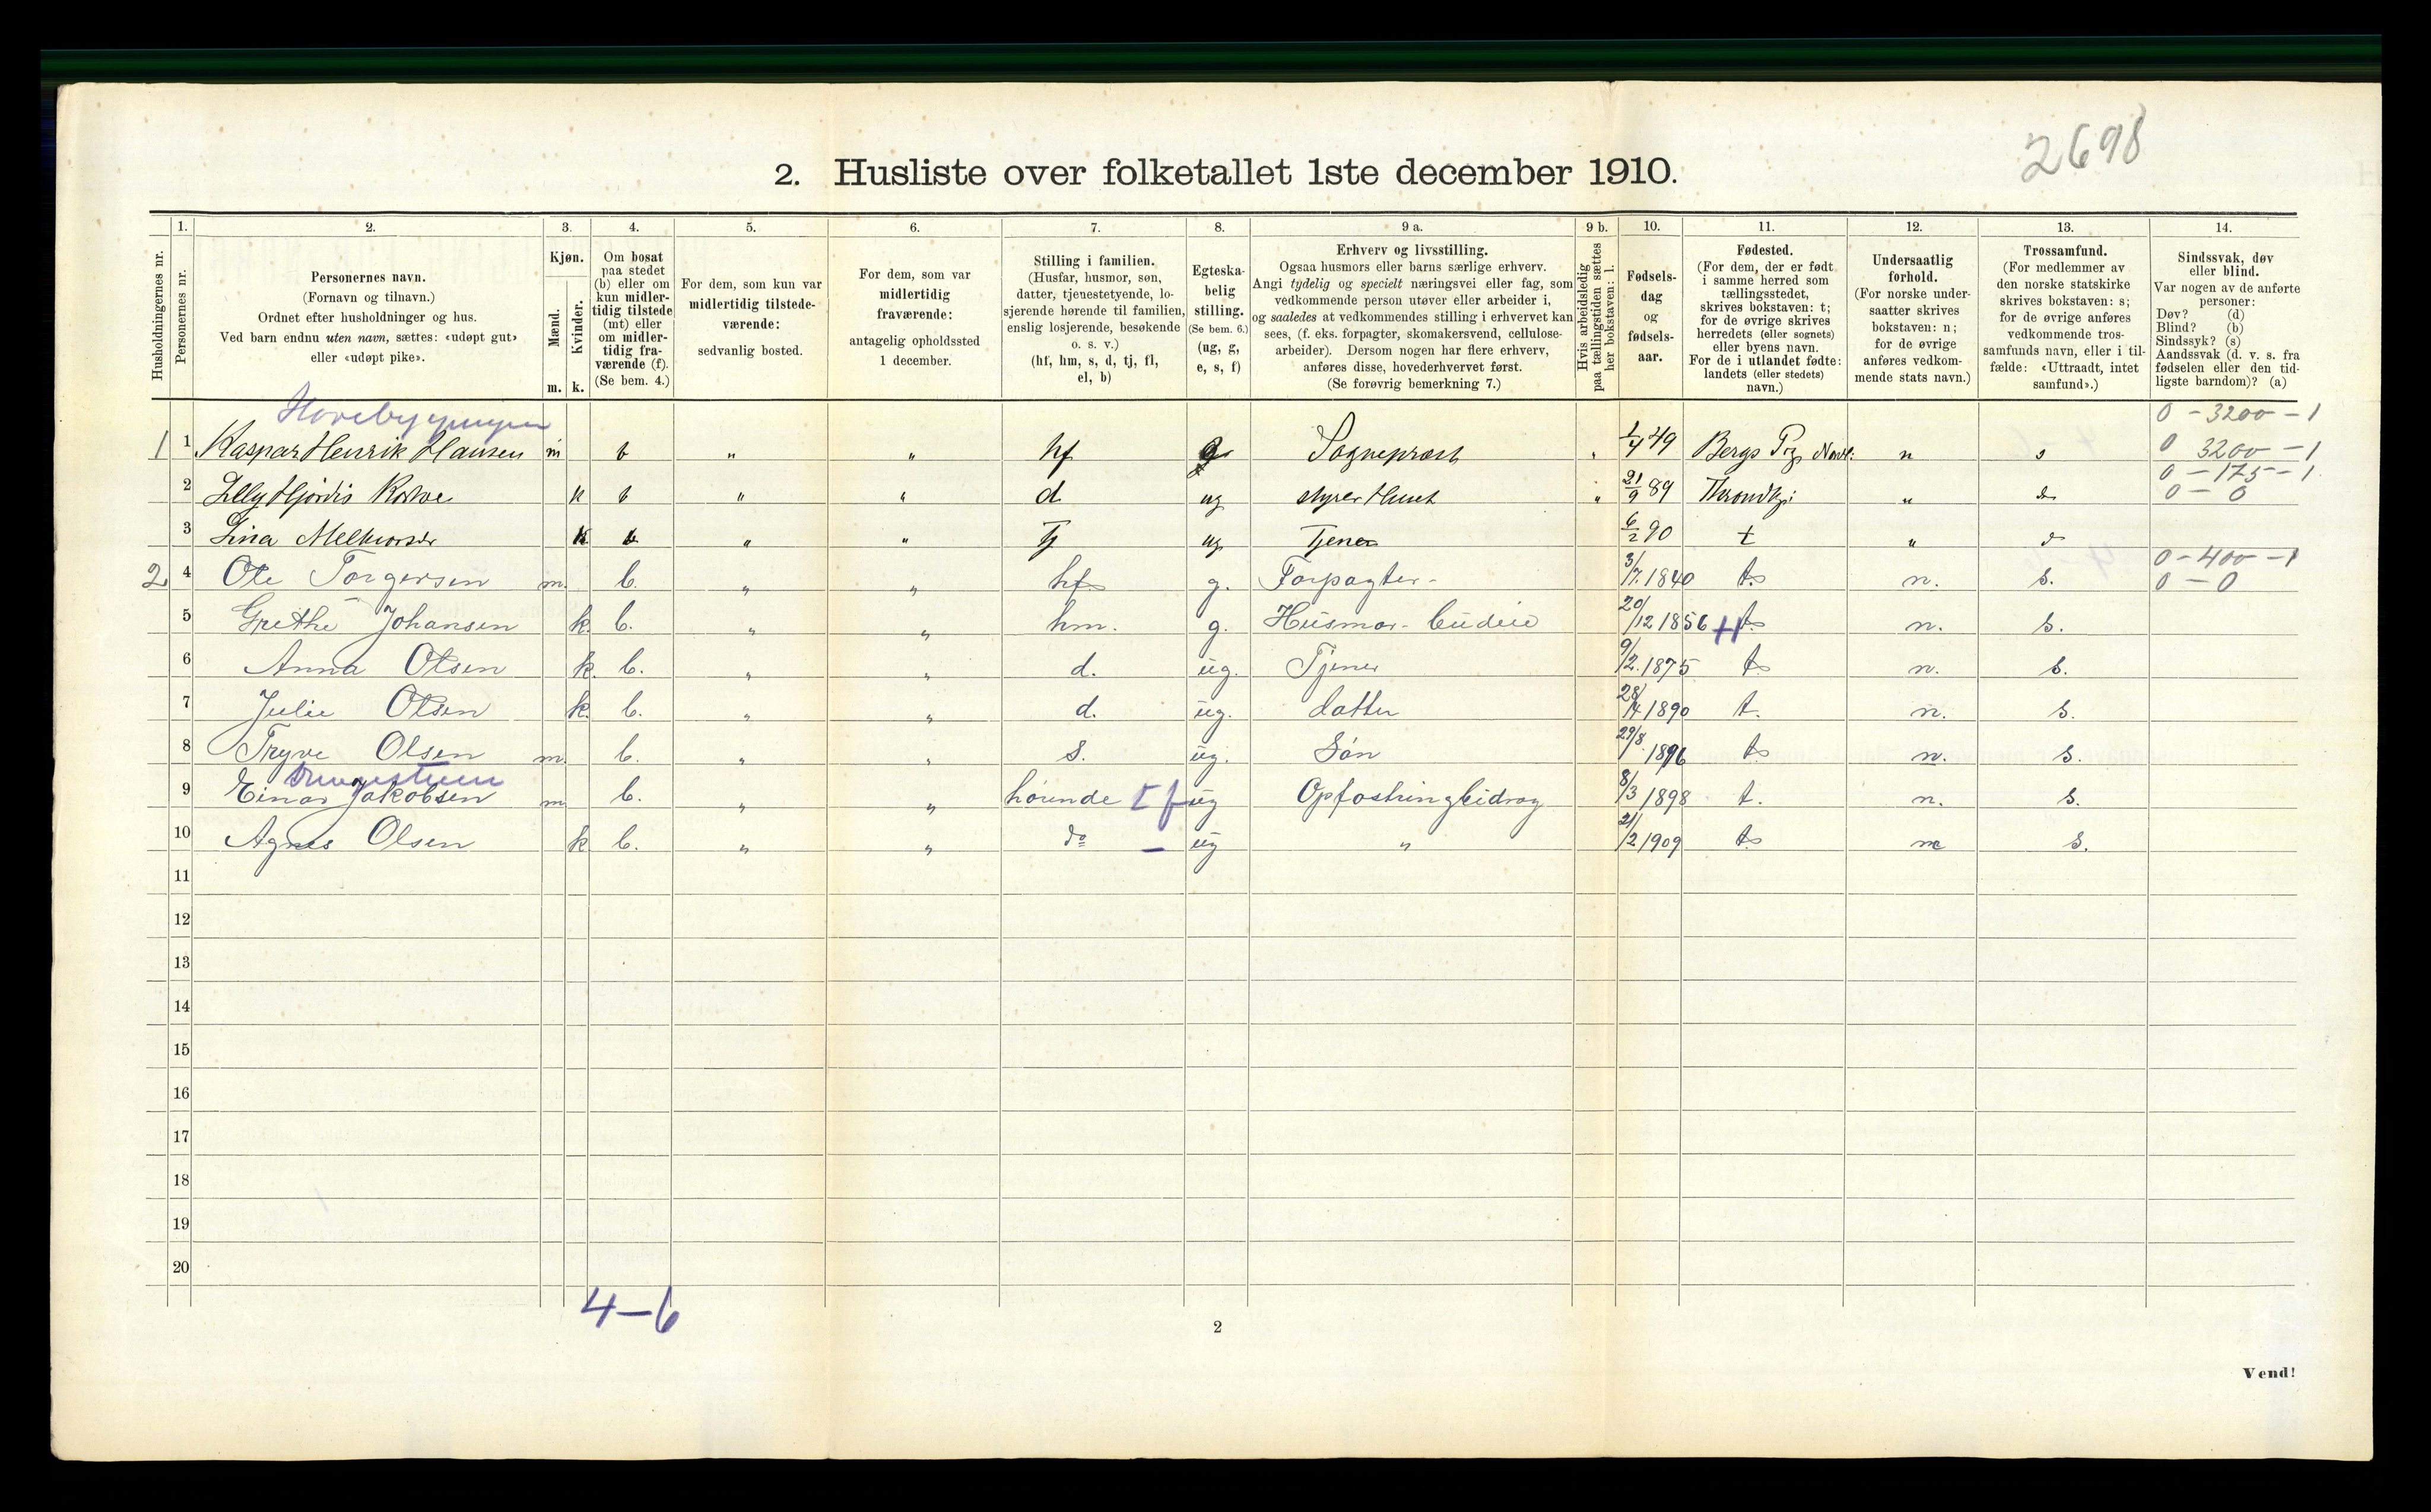 2698
2. Husliste over folketallet 1ste december 1910.
Husholdningernes nr.
1.
Personernes nr.
2.
Personernes navn.
(Fornavn og tilnavn.)
Ordnet efter husholdninger og hus.
Ved barn endnu uten navn, sættes: «udøpt gut»
eller «udøpt pike».
3.
Kjøn.
Mænd.
Kvinder.
m. k.
4.
Om bosat
paa stedet
(b) eller om
kun midler-
tidig tilstede
(mt) eller
om midler-
tidig fra-
værende (f).
(Se bem. 4.)
5.
For dem, som kun var
midlertidig tilstede-
værende:
sedvanlig bosted.
6.
For dem, som var
midlertidig
fraværende:
antagelig opholdssted
1 december.
7.
Stilling i familien.
(Husfar, husmor, søn,
datter, tjenestetyende, lo-
sjerende hørende til familien,
enslig losjerende, besøkende
o. s. v.)
(hf, hm, s, d, tj, fl,
el, b)
8.
Egteska-
belig
stilling.
(Se bem. 6.)
(ug, g,
e, s, f)
9 a.
Erhverv og livsstilling.
Ogsaa husmors eller barns særlige erhverv.
Angi tydelig og specielt næringsvei eller fag, som
vedkommende person utøver eller arbeider i,
og saaledes at vedkommendes stilling i erhvervet kan
sees, (f. eks. forpagter, skomakersvend, cellulose-
arbeider). Dersom nogen har flere erhverv,
anføres disse, hovederhvervet først.
(Se forøvrig bemerkning 7.)
9 b.
Hvis arbeidsledig
paa tællingstiden sættes
her bokstaven: l.
10.
Fødsels-
dag
og
fødsels-
aar.
11.
Fødested.
(For dem, der er født
i samme herred som
tællingsstedet,
skrives bokstaven: t;
for de øvrige skrives
herredets (eller sognets)
eller byens navn.
For de i utlandet fødte:
landets (eller stedets)
navn.)
12.
Undersaatlig
forhold.
(For norske under-
saatter skrives
bokstaven: n;
for de øvrige
anføres vedkom-
mende stats navn.)
13.
Trossamfund.
(For medlemmer av
den norske statskirke
skrives bokstaven: s;
for de øvrige anføres
vedkommende tros-
samfunds navn, eller i til-
fælde: «Uttraadt, intet
samfund».)
14.
Sindssvak, døv
eller blind.
Var nogen av de anførte
personer:
Døv? (d)
Blind? (b)
Sindssyk? (s)
Aandssvak (d. v. s. fra
fødselen eller den tid-
ligste barndom)? (a)
Hovebygningen 0 - 3200 - 1
1 1 Kaspar Henrik Hansen m b " " hf g Sogneprest 1/4 49 Bergs n s 0 3200 - 1
0 - 175 - 1
2 Hjördis k b " " d ug styrer Huset " 21/9 89 Throndhj: " 0 - 0
3 Lina k b " " Tj ug Tjener 6/2 90 t "
0 - 400 - 1
2 4 Ole Torgersen m. b. " " hf g. Forpagter- 3/7. 1840 t n. s. 0 - 0
5 Grethe Johansen k. b. " " hm. g. Husmor- budeie 20/12 1856 t n. s.
6 Anna Olsen k. b. " " d. ug. Tjener 9/2. 1875 t n. s.
7 Julie Olsen k. b. " " d. ug. datter 28/4 1890 t. n. s.
8 Tryve Olsen m. b. " " s. ug. Sön 29/8. 1896 t n. s.
9 Einar Jakobsen m b. " " hörende t f ug Opfostringbidrag 8/3 1898 t. n. s.
10 Agnes Olsen k b. " " do - ug " 21/2 1909 t n s.
11
12
13
14
15
16
17
18
19
20
4-6
2
Vend!